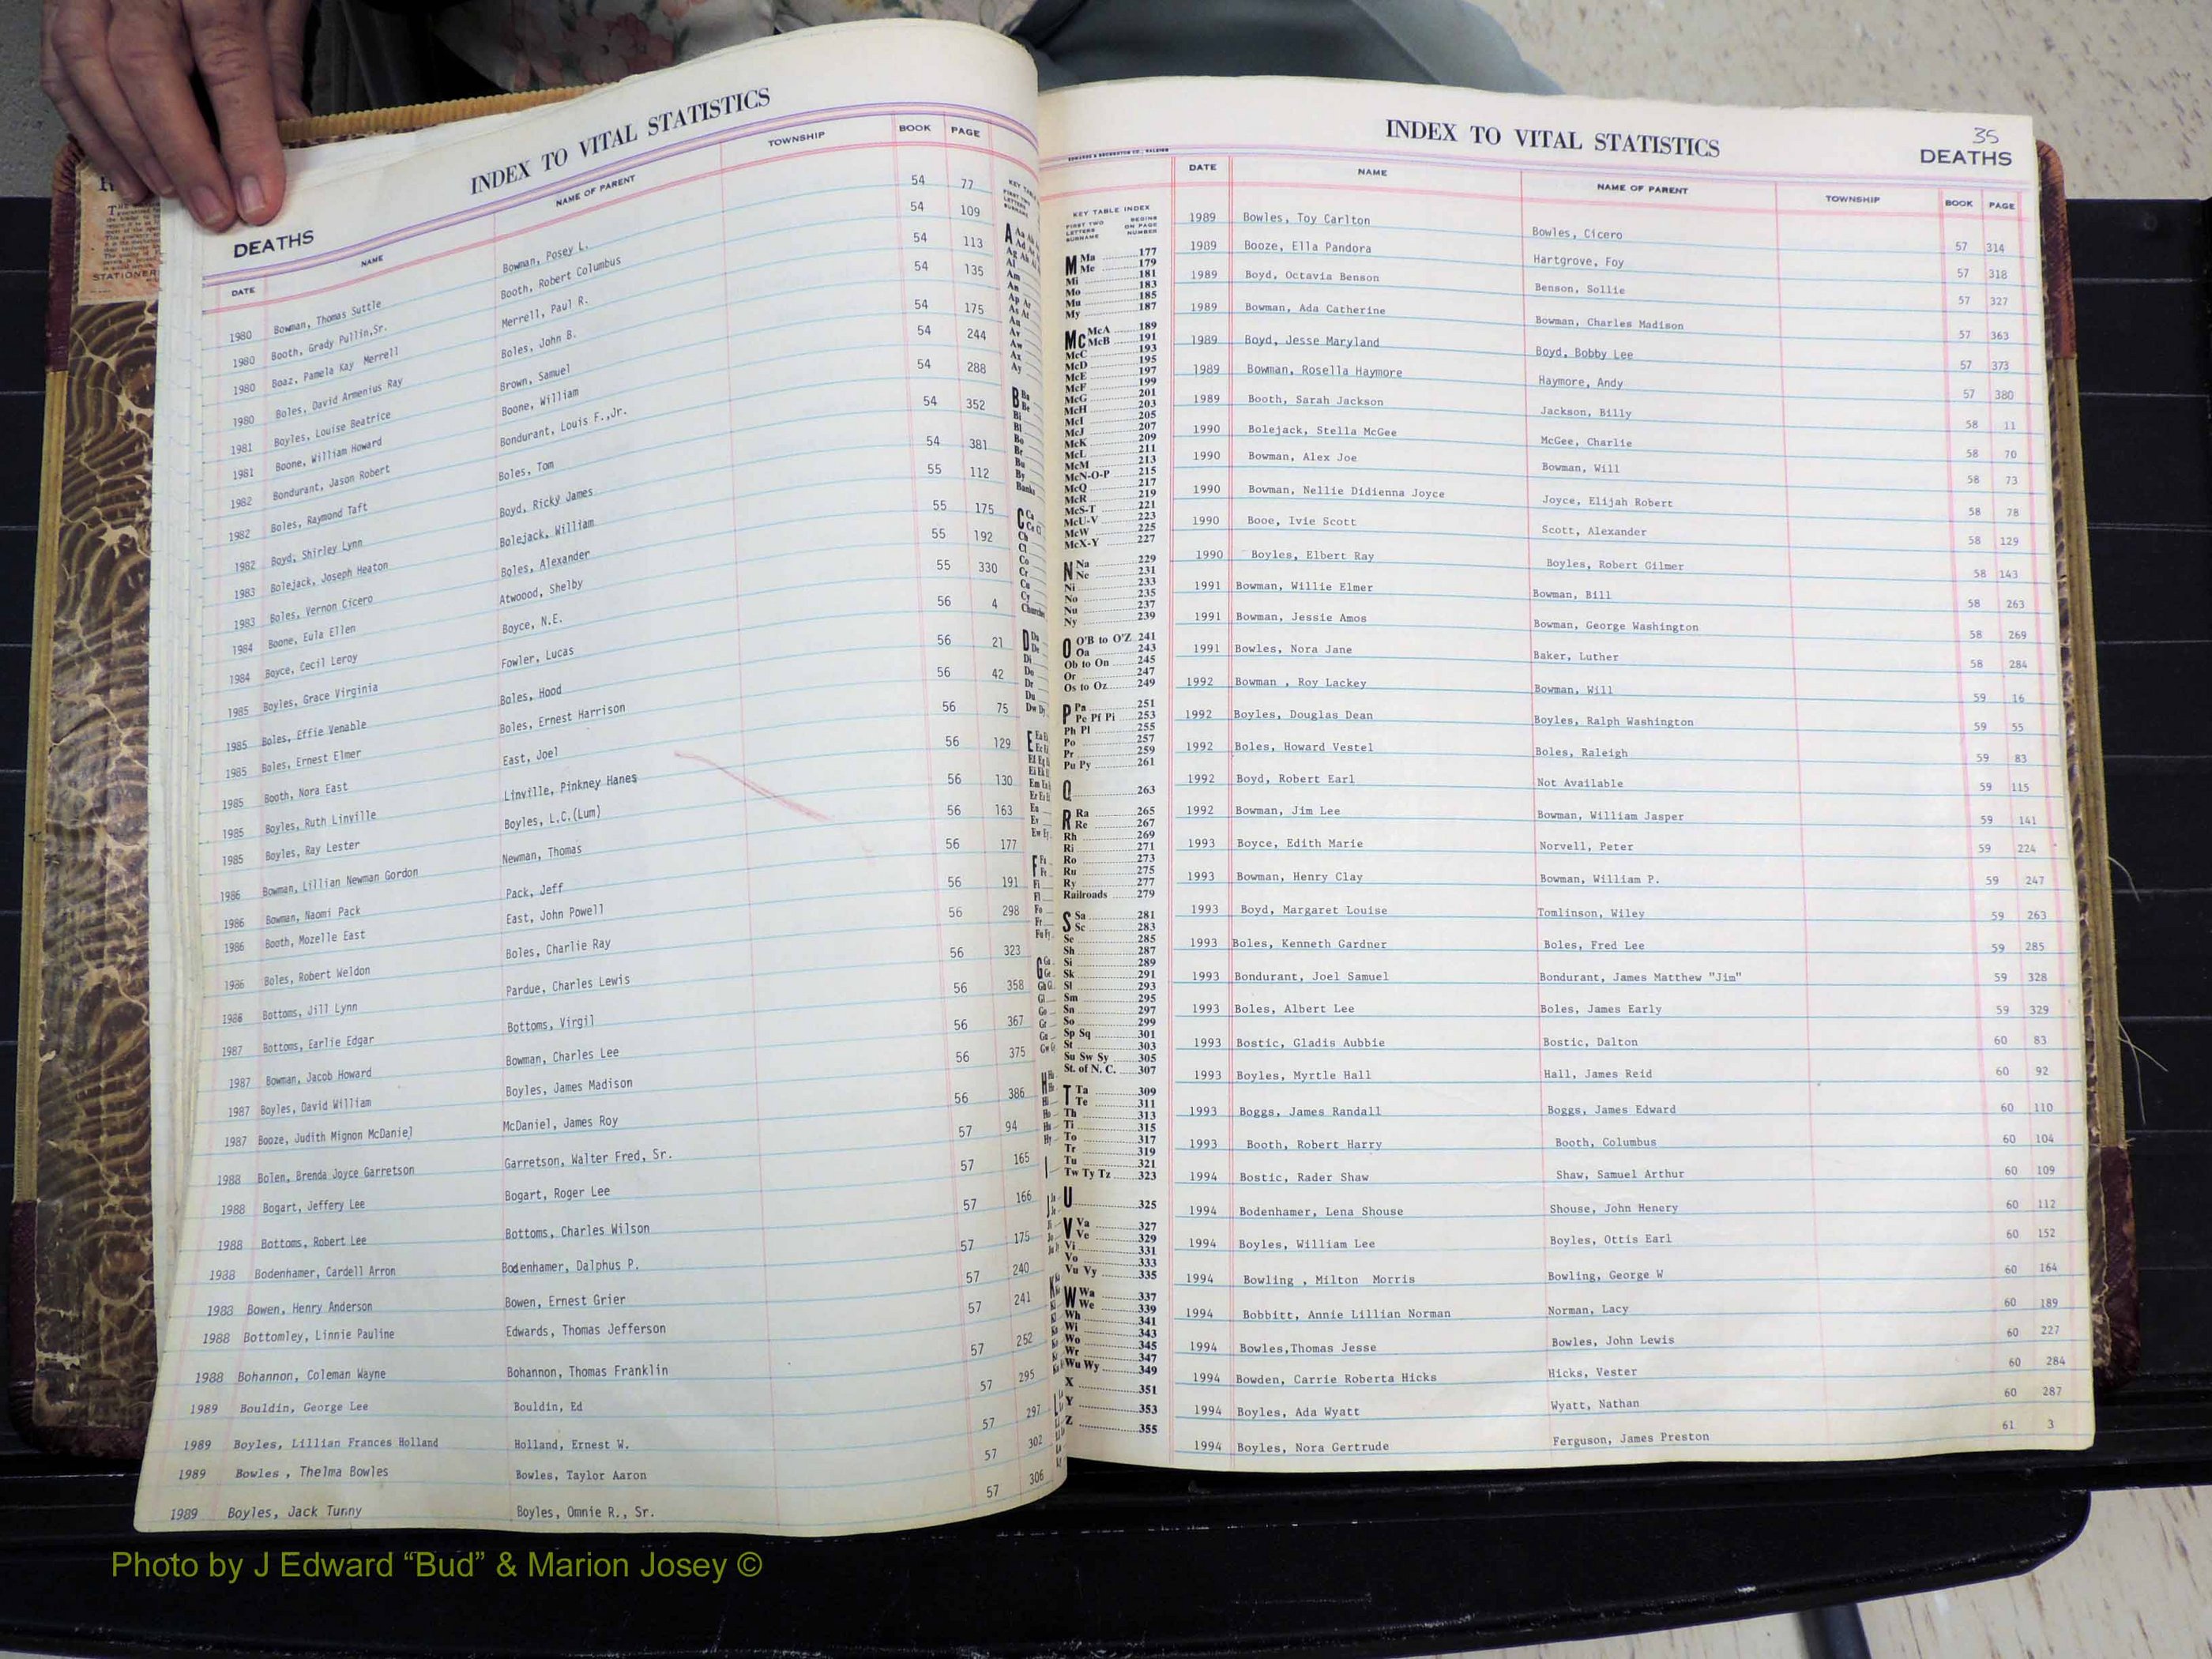 INDEX TO VITAL STATISTICS
DEATHS
DATE NAME NAME OF PARENT TOWNSHIP BOOK PAGE
1980 Bowman, Thomas Suttle Bowman, Posey L. 54 77
1980 Booth, Grady Pullin,Sr. Booth, Robert Columbus 54 109
1980 Boaz, Pamela Kay Merrell Merrell, Paul R. 54 113
1980 Boles, David Armenius Ray Boles, John B. 54 135
1981 Boyles, Louise Beatrice Brown, Samuel 54 175
1981 Boone, William Howard Boone, William 54 244
1982 Bondurant, Jason Robert Bondurant, Louis F.,Jr. 54 288
1982 Boles, Raymond Taft Boles, Tom 54 352
1982 Boyd, Shirley Lynn Boyd, Ricky James 54 381
1983 Bolejack, Joseph Heaton Bolejack, William 55 112
1983 Boles, Vernon Cicero Boles, Alexander 55 175
1984 Boone, Eula Ellen Atwoood, Shelby 55 192
1984 Boyce, Cecil Leroy Boyce, N.E. 55 330
1985 Boyles, Grace Virginia Fowler, Lucas 56 4
1985 Boles, Effie Venable Boles, Hood 56 21
1985 Boles, Ernest Elmer Boles, Ernest Harrison 56 42
1985 Booth, Nora East East, Joel 56 75
1985 Boyles, Ruth Linville Linville, Pinkney Hanes 56 129
1985 Boyles, Ray Lester Boyles, L.C.(Lum) 56 130
1986 Bowman, Lillian Newman Gordon Newman, Thomas 56 163
1986 Bowman, Naomi Pack Pack, Jeff 56 177
1986 Booth, Mozelle East East, John Powell 56 191
1986 Boles, Robert Weldon Boles, Charlie Ray 56 298
1986 Bottoms, Jill Lynn Pardue, Charles Lewis 56 323
1987 Bottoms, Earlie Edgar Bottoms, Virgil 56 358
1987 Bowman, Jacob Howard Bowman, Charles Lee 56 367
1987 Boyles, David William Boyles, James Madison 56 375
1987 Booze, Judith Mignon McDaniel McDaniel, James Roy 56 386
1988 Bolen, Brenda Joyce Garretson Garretson, Walter Fred, Sr. 57 94
1988 Bogart, Jeffery Lee Bogart, Roger Lee 57 165
1988 Bottoms, Robert Lee Bottoms, Charles Wilson 57 166
1988 Bodenhamer, Cardell Arron Bodenhamer, Dalphus P. 57 175
1988 Bowen, Henry Anderson Bowen, Ernest Grier 57 240
1988 Bottomley, Linnie Pauline Edwards, Thomas Jefferson 57 241
1988 Bohannon, Coleman Wayne Bohannon, Thomas Franklin 57 252
1989 Bouldin, George Lee Bouldin, Ed 57 295
1989 Boyles, Lillian Frances Holland Holland, Ernest W. 57 297
1989 Bowles , Thelma Bowles Bowles, Taylor Aaron 57 302
1989 Boyles, Jack Tunny Boyles, Omnie R., Sr. 57 306
KEY TABLE INDEX
FIRST TWO LETTERS SURNAME BEGINS ON PAGE NUMBER
M Ma 177
Me 179
Mi 181
Mo 183
Mu 185
My 187
Mc McA 189
McB 191
McC 193
McD 195
McE 197
McF 199
McG 201
McH 203
McI 205
McJ 207
McK 209
McL 211
McM 213
McN-O-P 215
McQ 217
McR 219
McS-T 221
McU-V 223
McW 225
McX-Y 227
N Na 229
Ne 231
Ni 233
No 235
Nu 237
Ny 239
O O'B to O'Z 241
Oa 243
Ob to On 245
Or 247
Os to Oz 249
P Pa 251
Pe Pf Pi 253
Ph Pl 255
Po 257
Pr 259
Pu Py 261
Q 263
R Ra 265
Re 267
Rh 269
Ri 271
Ro 273
Ru 275
Ry 277
Railroads 279
S Sa 281
Sc 283
Se 285
Sh 287
Si 289
Sk 291
Sl 293
Sm 295
Sn 297
So 299
Sp Sq 301
St 303
Su Sw Sy 305
St. of N. C. 307
T Ta 309
Te 311
Th 313
Ti 315
To 317
Tr 319
Tu 321
Tw Ty Tz 323
U 325
V Va 327
Ve 329
Vi 331
Vo 333
Vu Vy 335
W Wa 337
We 339
Wh 341
Wi 343
Wo 345
Wr 347
Wu Wy 349
X 351
Y 353
Z 355
35
INDEX TO VITAL STATISTICS
DEATHS
DATE NAME NAME OF PARENT TOWNSHIP BOOK PAGE
1989 Bowles, Toy Carlton Bowles, Cicero 57 314
1989 Booze, Ella Pandora Hartgrove, Foy 57 318
1989 Boyd, Octavia Benson Benson, Sollie 57 327
1989 Bowman, Ada Catherine Bowman, Charles Madison 57 363
1989 Boyd, Jesse Maryland Boyd, Bobby Lee 57 373
1989 Bowman, Rosella Haymore Haymore, Andy 57 380
1989 Booth, Sarah Jackson Jackson, Billy 58 11
1990 Bolejack, Stella McGee McGee, Charlie 58 70
1990 Bowman, Alex Joe Bowman, Will 58 73
1990 Bowman, Nellie Didienna Joyce Joyce, Elijah Robert 58 78
1990 Booe, Ivie Scott Scott, Alexander 58 129
1990 Boyles, Elbert Ray Boyles, Robert Gilmer 58 143
1991 Bowman, Willie Elmer Bowman, Bill 58 263
1991 Bowman, Jessie Amos Bowman, George Washington 58 269
1991 Bowles, Nora Jane Baker, Luther 58 284
1992 Bowman , Roy Lackey Bowman, Will 59 16
1992 Boyles, Douglas Dean Boyles, Ralph Washington 59 55
1992 Boles, Howard Vestel Boles, Raleigh 59 83
1992 Boyd, Robert Earl Not Available 59 115
1992 Bowman, Jim Lee Bowman, William Jasper 59 141
1993 Boyce, Edith Marie Norvell, Peter 59 224
1993 Bowman, Henry Clay Bowman, William P. 59 247
1993 Boyd, Margaret Louise Tomlinson, Wiley 59 263
1993 Boles, Kenneth Gardner Boles, Fred Lee 59 285
1993 Bondurant, Joel Samuel Bondurant, James Matthew "Jim" 59 328
1993 Boles, Albert Lee Boles, James Early 59 329
1993 Bostic, Gladis Aubbie Bostic, Dalton 60 83
1993 Boyles, Myrtle Hall Hall, James Reid 60 92
1993 Boggs, James Randall Boggs, James Edward 60 110
1993 Booth, Robert Harry Booth, Columbus 60 104
1994 Bostic, Rader Shaw Shaw, Samuel Arthur 60 109
1994 Bodenhamer, Lena Shouse Shouse, John Henery 60 112
1994 Boyles, William Lee Boyles, Ottis Earl 60 152
1994 Bowling , Milton Morris Bowling, George W 60 164
1994 Bobbitt, Annie Lillian Norman Norman, Lacy 60 189
1994 Bowles,Thomas Jesse Bowles, John Lewis 60 227
1994 Bowden, Carrie Roberta Hicks Hicks, Vester 60 284
1994 Boyles, Ada Wyatt Wyatt, Nathan 60 287
1994 Boyles, Nora Gertrude Ferguson, James Preston 61 3
Photo by J Edward “Bud” & Marion Josey ©